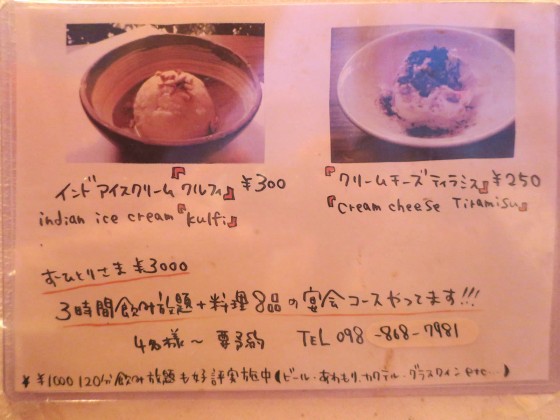 インドアイスクリーム『クルフィ』 ¥300
indian ice cream『kulfi』
『クリームチーズティラミス』 ¥250
『Cream cheese Tiramisu』
おーひとりさま ¥3000
3時間飲み放題+料理8品の宴会コースやってます!!!
4名様〜 要予約 TEL 098-868-7981
* ¥1000 120分飲み放題も好評実施中(ビール・あわもり、カクテル・グラスワイン etc...)